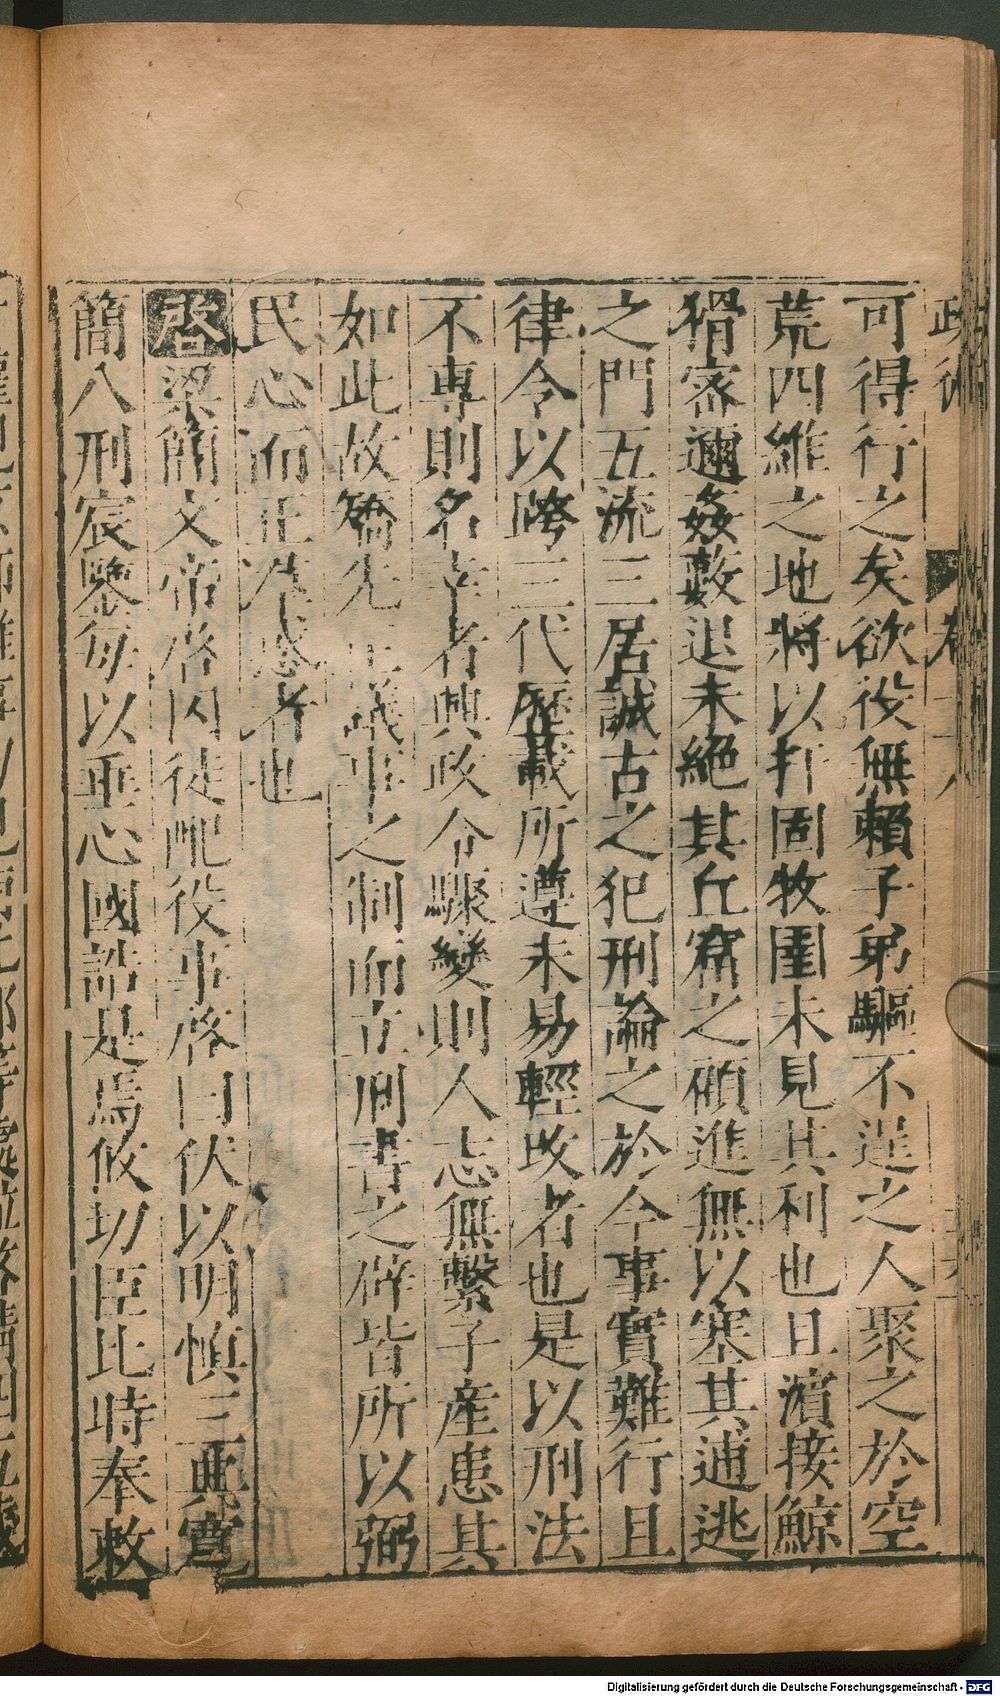 可得行之矣欲役無賴子弟驅不逞之人聚之於空
荒四維之地將以扞固牧圉未見其利也且濵接鯨
猾密邇姦藪退未絕其丘窟之碩進無以塞其逋逃
之門五流三居誠古之犯刑論之於今事實難行且
律令以跨三代歷載所遵未易輕改者也是以刑法
不專則名幸者興政令驟變則人志無繫子產患其
如此故矯先王議事之制而立刑書之辟皆所以弼
民心而正准惑者也
啓梁簡文帝啓囚徒配役事啓曰伏以明慎三典寬
簡八刑宸鑒每以垂心國誥是焉攸切臣比時奉敕
Digitalisierung gefördert durch die Deutsche Forschungsgemeinschaft - DFG